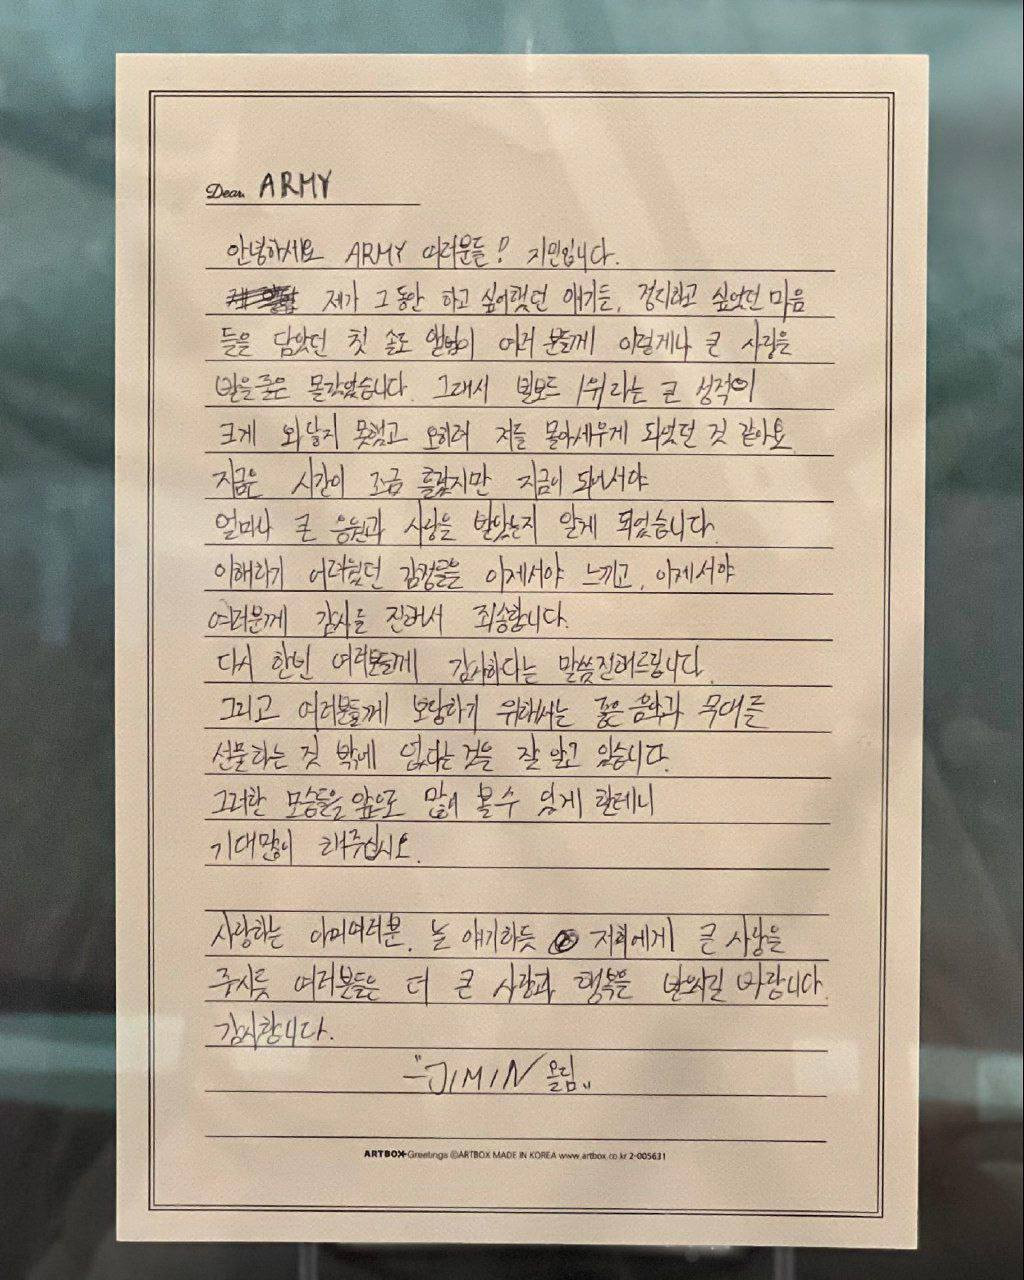 Dear. ARMY
안녕하세요 ARMY 여러분들! 지민입니다.
제가 그동안 하고 싶어했던 얘기들, 정리하고 싶었던 마음
들을 담았던 첫 솔로 앨범이 여러분들께 이렇게나 큰 사랑을
받을줄은 몰랐었습니다. 그래서 빌보드 1위라는 큰 성적이
크게 와닿지 못했고 오히려 저를 몰아세우게 되었던 것 같아요
지금은 시간이 조금 흘렀지만 지금이 되어서야
얼마나 큰 응원과 사랑을 받았는지 알게 되었습니다.
이해하기 어려웠던 감정들을 이제서야 느끼고, 이제서야
여러분께 감사를 전해서 죄송합니다.
다시 한번 여러분들께 감사하다는 말씀전해드립니다.
그리고 여러분들께 보답하기 위해서는 좋은 음악과 무대를
선물하는 것 밖에 없다는 것을 잘 알고 있습니다.
그러한 모습들을 앞으로 많이 볼 수 있게 할테니
기대많이 해주십시오.
사랑하는 아미여러분, 늘 얘기하듯 저희에게 큰 사랑을
주시듯 여러분들은 더 큰 사랑과 행복을 받으시길 바랍니다.
감사합니다.
"-JIMIN 올림"
ARTBOX Greetings ⓒARTBOX MADE IN KOREA www.artbox.co.kr 2-005631